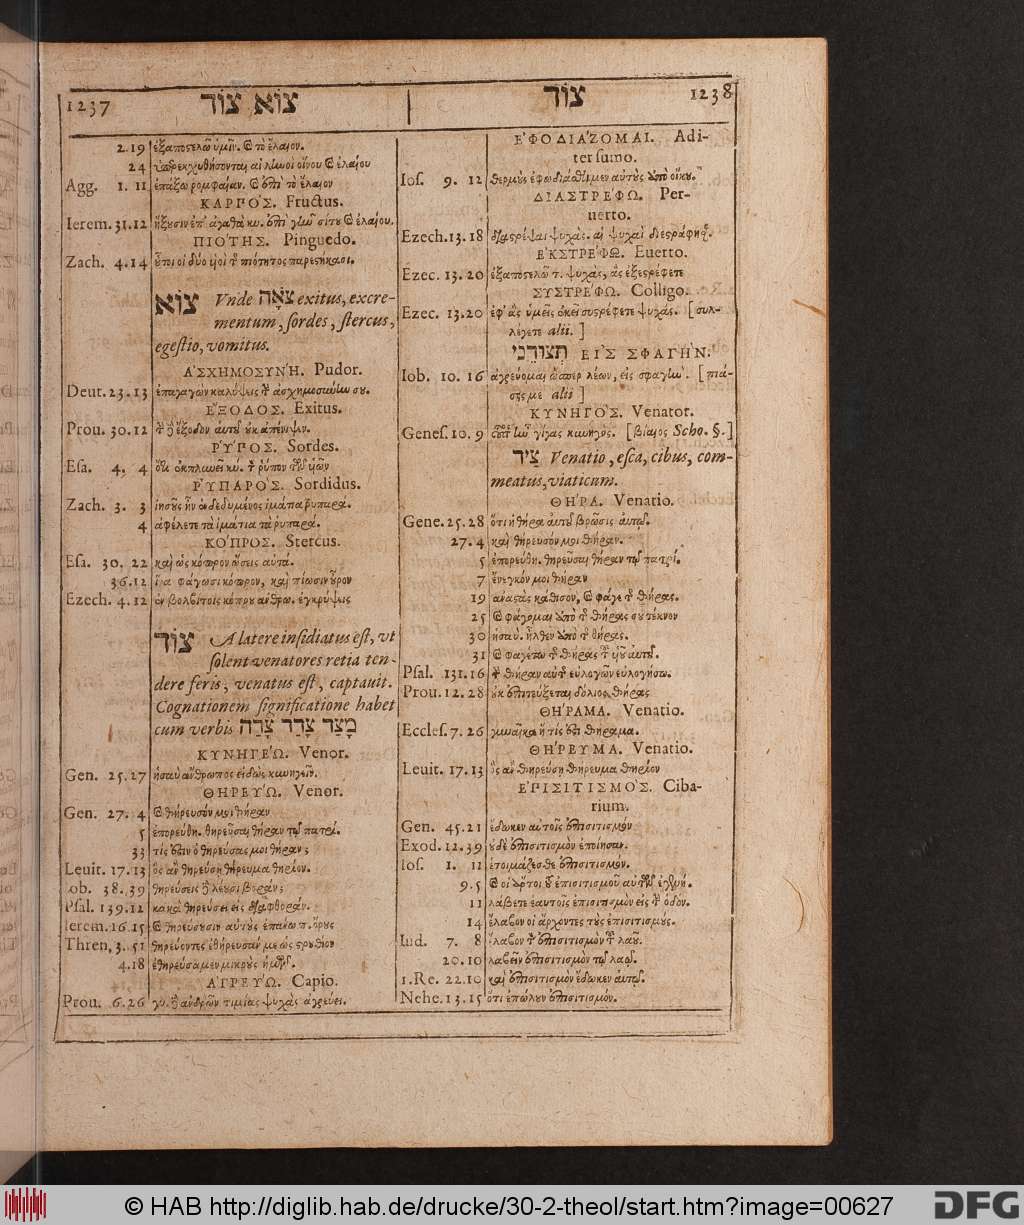 1237 צוא צוד
2.19 ἐξαποστελῶ ὑμῖν. & τὸ ἔλαιον.
24 ὑπερεκχυθήσονται αἱ ληνοὶ οἴνου & ἐλαίου
Agg. 1. 11 ἐπάξω ρομφαίαν. & ἐπὶ τὸ ἔλαιον
ΚΑΡΠΟ´Σ. Fructus.
Ierem. 31.12 ἥξουσιν ἐπ' ἀγαθὰ κυ. ἐπὶ γῆν σίτου & ἐλαίου.
ΠΙΟ´ΤΗΣ. Pinguedo.
Zach. 4.14 οὗτοι οἱ δύο υἱοὶ τῆς πιότητος παρεστήκασι.
צוא Vnde צֹאָה exitus, excre-
mentum, sordes, stercus,
egestio, vomitus.
ἈΣΧΗΜΟΣΥ´ΝΗ. Pudor.
Deut. 23.13 ἐπαγαγὼν καλύψεις τὴν ἀσχημοσύνην σου.
ἜΞΟΔΟΣ. Exitus.
Prou. 30.12 τὴν δ' ἔξοδον αὐτοῦ οὐκ ἀπένιψεν.
ῬΥ´ΠΟΣ. Sordes.
Esa. 4. 4 ὅτι ἐκπλυνεῖ κύ. τὸν ῥύπον τῶν υἱῶν
ῬΥΠΑΡΟ´Σ. Sordidus.
Zach. 3. 3 ἰησοῦς ἦν ἐνδεδυμένος ἱμάτια ῥυπαρά.
4 ἀφέλετε τὰ ἱμάτια τὰ ῥυπαρά.
ΚΟ´ΠΡΟΣ. Stercus.
Esa. 30. 22 καὶ ὡς κόπρον ὤσεις αὐτά.
36.12 ἵνα φάγωσι κόπρον, καὶ πίωσιν οὖρον
Ezech. 4.12 ἐν βολβίτοις κόπρου ἀνθρω. ἐγκρύψεις
צוֹד A latere insidiatus est, vt
solent venatores retia ten-
dere feris, venatus est, captauit.
Cognationem significatione habet
cum verbis מָצַד צָדַד צָדָה
ΚΥΝΗΓΕ´Ω. Venor.
Gen. 25.27 ἠσαὺ ἄνθρωπος εἰδὼς κυνηγεῖν.
ΘΗΡΕΥ´Ω. Venor.
Gen. 27. 4 & θήρευσόν μοι θήραν
5 ἐπορεύθη. θηρεῦσαι θήραν τῷ πατρί.
33 τίς οὖν ὁ θηρεύσας μοι θήραν;
Leuit. 17.13 ὃς ἂν θηρεύσῃ θήρευμα θηρίον.
Iob. 38. 39 θηρεύσεις δὲ λέουσι βοράν;
Psal. 139.12 κακὰ θηρεύσει εἰς διαφθοράν.
Ierem. 16.15 & θηρεύσουσιν αὐτοὺς ἐπάνω π. ὄρους
Thren. 3. 51 θηρεύοντες ἐθήρευσάν με ὡς στρουθίον
4.18 ἐθηρεύσαμεν μικροὺς ἡμῶν.
ἈΓΡΕΥ´Ω. Capio.
Prou. 6.26 γυ. δὲ ἀνδρῶν τιμίας ψυχὰς ἀγρεύει.
צוד 1238
ἘΦΟΔΙΑ´ΖΟΜΑΙ. Adi-
ter sumo.
Ios. 9. 12 θερμοὺς ἐφωδιάσθημεν αὐτοὺς ὑπὸ οἴκου.
ΔΙΑΣΤΡΕ´ΦΩ. Per-
uerto.
Ezech. 13.18 διαστρέψαι ψυχάς. αἱ ψυχαὶ διεστράφησ.
ἘΚΣΤΡΕ´ΦΩ. Euerto.
Ezec. 13.20 ἐξαποστελῶ τ. ψυχὰς, ἃς ἐξεστρέφετε
ΣΥΣΤΡΕ´ΦΩ. Colligo.
Ezec. 13.20 ἐφ' ἃς ὑμεῖς ἐκεῖ συστρέφετε ψυχάς. [συλ-
λέγετε alii.]
תְצוּדֵנִי ΕΙΣ ΣΦΑΓΗΝ.
Iob. 10. 16 ἀγρεύομαι ὥσπερ λέων, εἰς σφαγήν. [πιά-
σῃς με alii]
ΚΥΝΗΓΟ´Σ. Venator.
Genes. 10. 9 οὗτος ἦν γίγας κυνηγός. [βίαιος Scho. §.]
צַיִד Venatio, esca, cibus, com-
meatus, viaticum.
ΘΗ´ΡΑ. Venatio.
Gene. 25.28 ὅτι ἡ θήρα αὐτοῦ βρῶσις αὐτῷ.
27. 4 καὶ θήρευσόν μοι θήραν.
5 ἐπορεύθη. θηρεῦσαι θήραν τῷ πατρί.
7 ἔνεγκόν μοι θήραν
19 ἀναστὰς κάθισον, & φάγε τῆς θήρας.
25 & φάγομαι ἀπὸ τῆς θήρας σου τέκνον
30 ἠσαῦ. ἦλθεν ἀπὸ τῆς θήρας.
31 & φαγέτω τῆς θήρας τοῦ υἱοῦ αὐτοῦ.
Psal. 131.16 τὴν θήραν αὐτῆς εὐλογῶν εὐλογήσω.
Prou. 12. 28 οὐκ ἐπιτεύξεται δόλιος θήρας
ΘΗ´ΡΑΜΑ. Venatio.
Eccles. 7.26 γυναῖκα ἥ τίς ἐστι θήραμα.
ΘΗ´ΡΕΥΜΑ. Venatio.
Leuit. 17.13 ὃς ἂν θηρεύσῃ θήρευμα θηρίον
ἘΠΙΣΙΤΙΣΜΟ´Σ. Ciba-
rium.
Gen. 45.21 ἔδωκεν αὐτοῖς ἐπισιτισμόν
Exod. 12.39 οὐδὲ ἐπισιτισμὸν ἐποίησαν.
Ios. 1. 11 ἑτοιμάζεσθε ἐπισιτισμόν.
9.5 & οἱ ἄρτοι τοῦ ἐπισιτισμοῦ αὐτῶν ξηροί.
11 λάβετε ἑαυτοῖς ἐπισιτισμὸν εἰς τὴν ὁδόν.
14 ἔλαβον οἱ ἄρχοντες τοὺς ἐπισιτισμούς.
Iud. 7. 8 ἔλαβον τὸν ἐπισιτισμὸν τοῦ λαοῦ.
20.10 λαβεῖν ἐπισιτισμὸν τῷ λαῷ.
1.Re. 22.10 καὶ ἐπισιτισμὸν ἔδωκεν αὐτῷ.
Nehe. 13.15 ὅτι ἐπώλουν ἐπισιτισμόν.
© HAB http://diglib.hab.de/drucke/30-2-theol/start.htm?image=00627
DFG